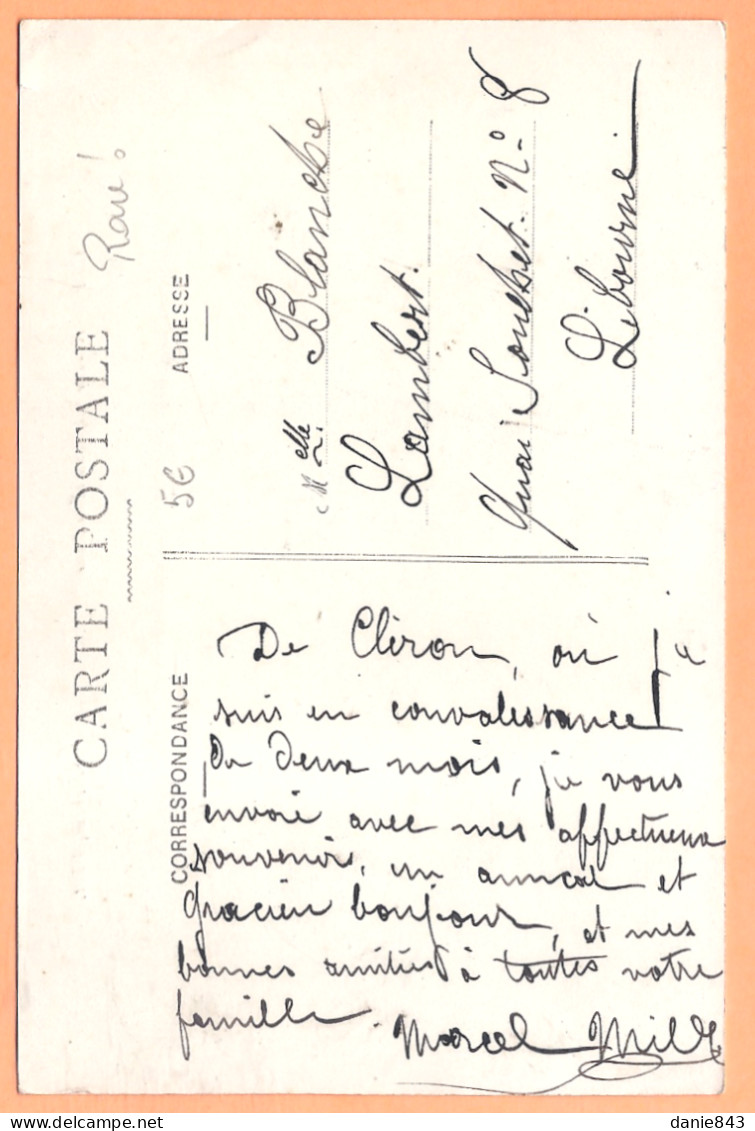 CARTE POSTALE
Rare!
CORRESPONDANCE
ADRESSE
5€
Melle Blanche
Lambert.
Quai Souchet. No 8
Libourne
De Cléron, où je
suis en convalessance
De Deux mois, je vous
envoie avec mes affectueux
souvenir, un amical et
gracieu bonjour, et mes
bonnes amitiés à toutes votre
famille.
Marcel
danie843